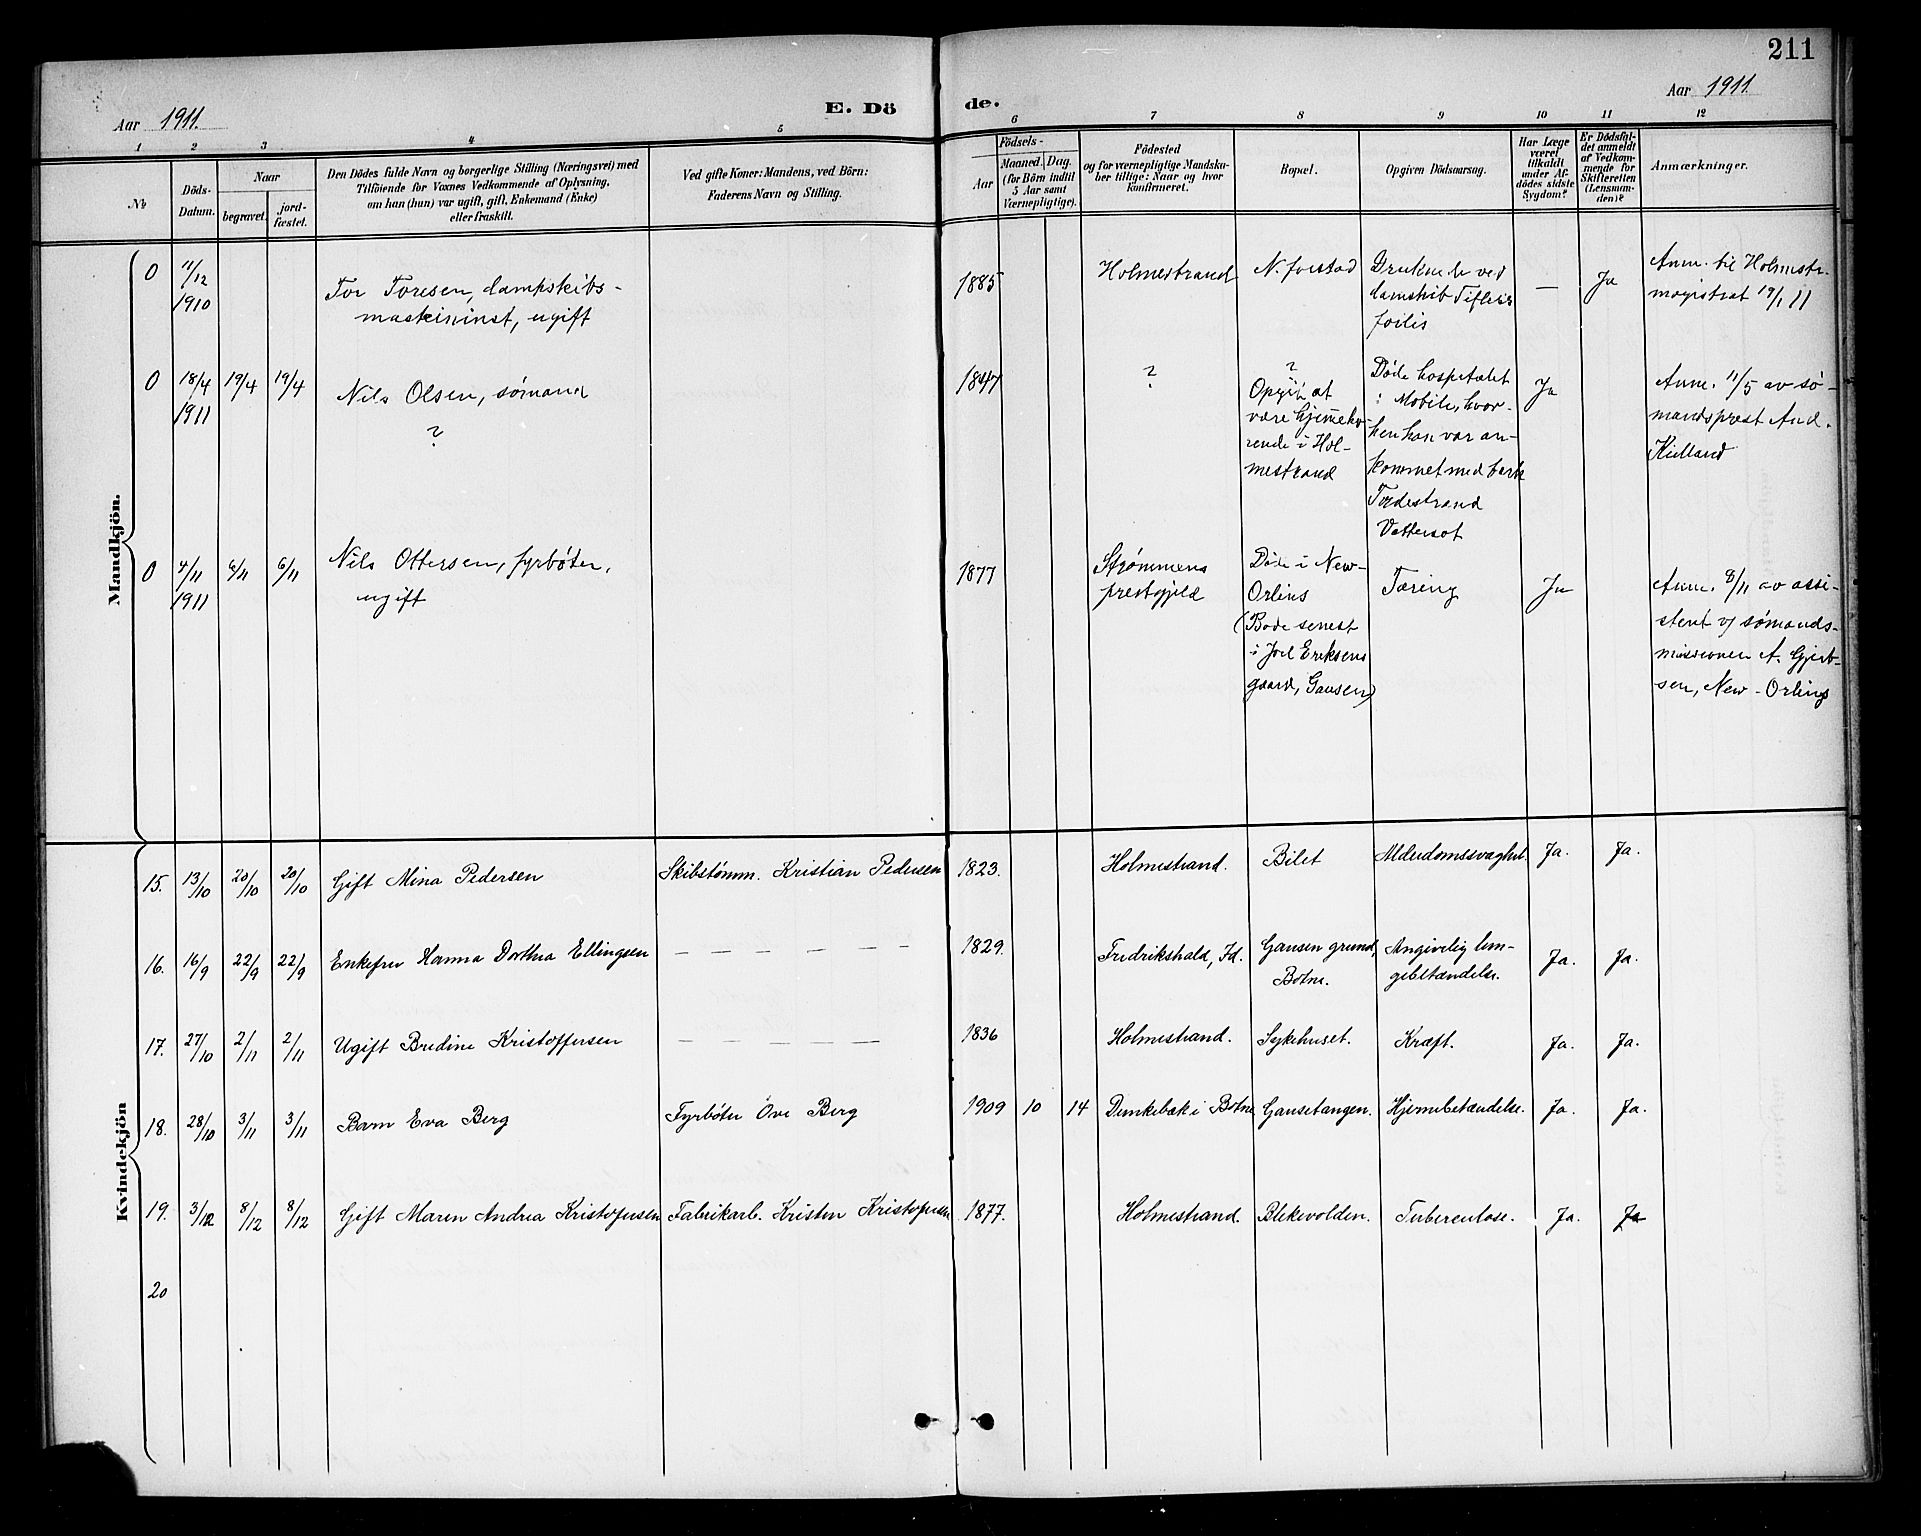 211
Aar 1911.
E. Dö de.
Aar 1911.
1 2 3 4 5 6 7 8 9 10 11 12
№
Döds-Datum.
Naar
begravet.
jord-fæstet.
Den Dödes fulde Navn og borgerlige Stilling (Næringsvei) med
Tilföiende for Voxnes Vedkommende af Oplysning,
om han (hun) var ugift, gift, Enkemand (Enke)
eller fraskilt.
Ved gifte Koner: Mandens, ved Börn:
Faderens Navn og Stilling.
Födsels-
Aar
Maaned. Dag.
(for Börn indtil
5 Aar samt
Værnepligtige).
Födested
og for værnepligtige Mandsku-
ber tillige: Naar og hvor
konfirmeret.
Bopæl.
Opgiven Dödsaarsag.
Har Læge
været
tilkaldt
under Af-
dödes sidste
Sygdom?
Er Dödsfal-
det anmeldt
af Vedkom-
mende for
Skifteretten
(Lensman-
den)?
Anmærkninger.
Mandkjön.
0 11/12 1910
Tor Toresen, dampskibs-
maskininst, ugift
1885
Holmestrand
N. forstad
Druknede ved
damskib Tiflis
forlis
—
Ja
Anm. til Holmestr.
magistrat 19/1 11
0 18/4 1911 19/4 19/4
Nils Olsen, sømand
?
1847
?
?
Opgit at
være hjemmehø-
rende i Hol-
mestrand
Døde hospitalet
i Mobile, hvor-
hen han var an-
kommet med bark
Tvedestrand
Ja
Anm. 11/5 av sø-
mandsprest And.
Kielland
0 4/11 1911 6/11 6/11
Nils Ottersen, fyrbøter,
ugift
1877
Strømmens
prestegjeld
Døde i New-
Orlins
(Bode senest
i Joel Eriksens
gaard, Gausen)
Tæring
Ja
Anm. 8/11 av assi-
stent v/ sømands-
missionen A. Gjert-
sen, New-Orlins
Kvindekjön
15. 13/10 20/10 20/10 Gift Mina Pedersen Skibstømm. Kristian Pedersen 1823. Holmestrand. Bilet Alderdomssvaghet. Ja. Ja.
16. 16/9 22/9 22/9 Enkefru Hanna Dorthea Ellingsen — — — — — 1829. Fredrikshald, Id. Gausen grund,
Botne. Angivelig lun-
gebetændelse. Ja. Ja.
17. 27/10 2/11 2/11 Ugift Bredine Kristoffersen — — — — — 1836 Holmestrand. Sykehuset. Kræft. Ja. Ja.
18. 28/10 3/11 3/11 Barn Eva Berg Fyrbøter Ove Berg 1909 10 14 Dunkebæk i Botne Gausetangen. Hjernebetændelse. Ja. Ja.
19. 3/12 8/12 8/12 Gift Maren Andrea Kristofersen Fabrikarb. Kristen Kristofersen 1877. Holmestrand. Blekevolden. Tuberculose. Ja. Ja
20